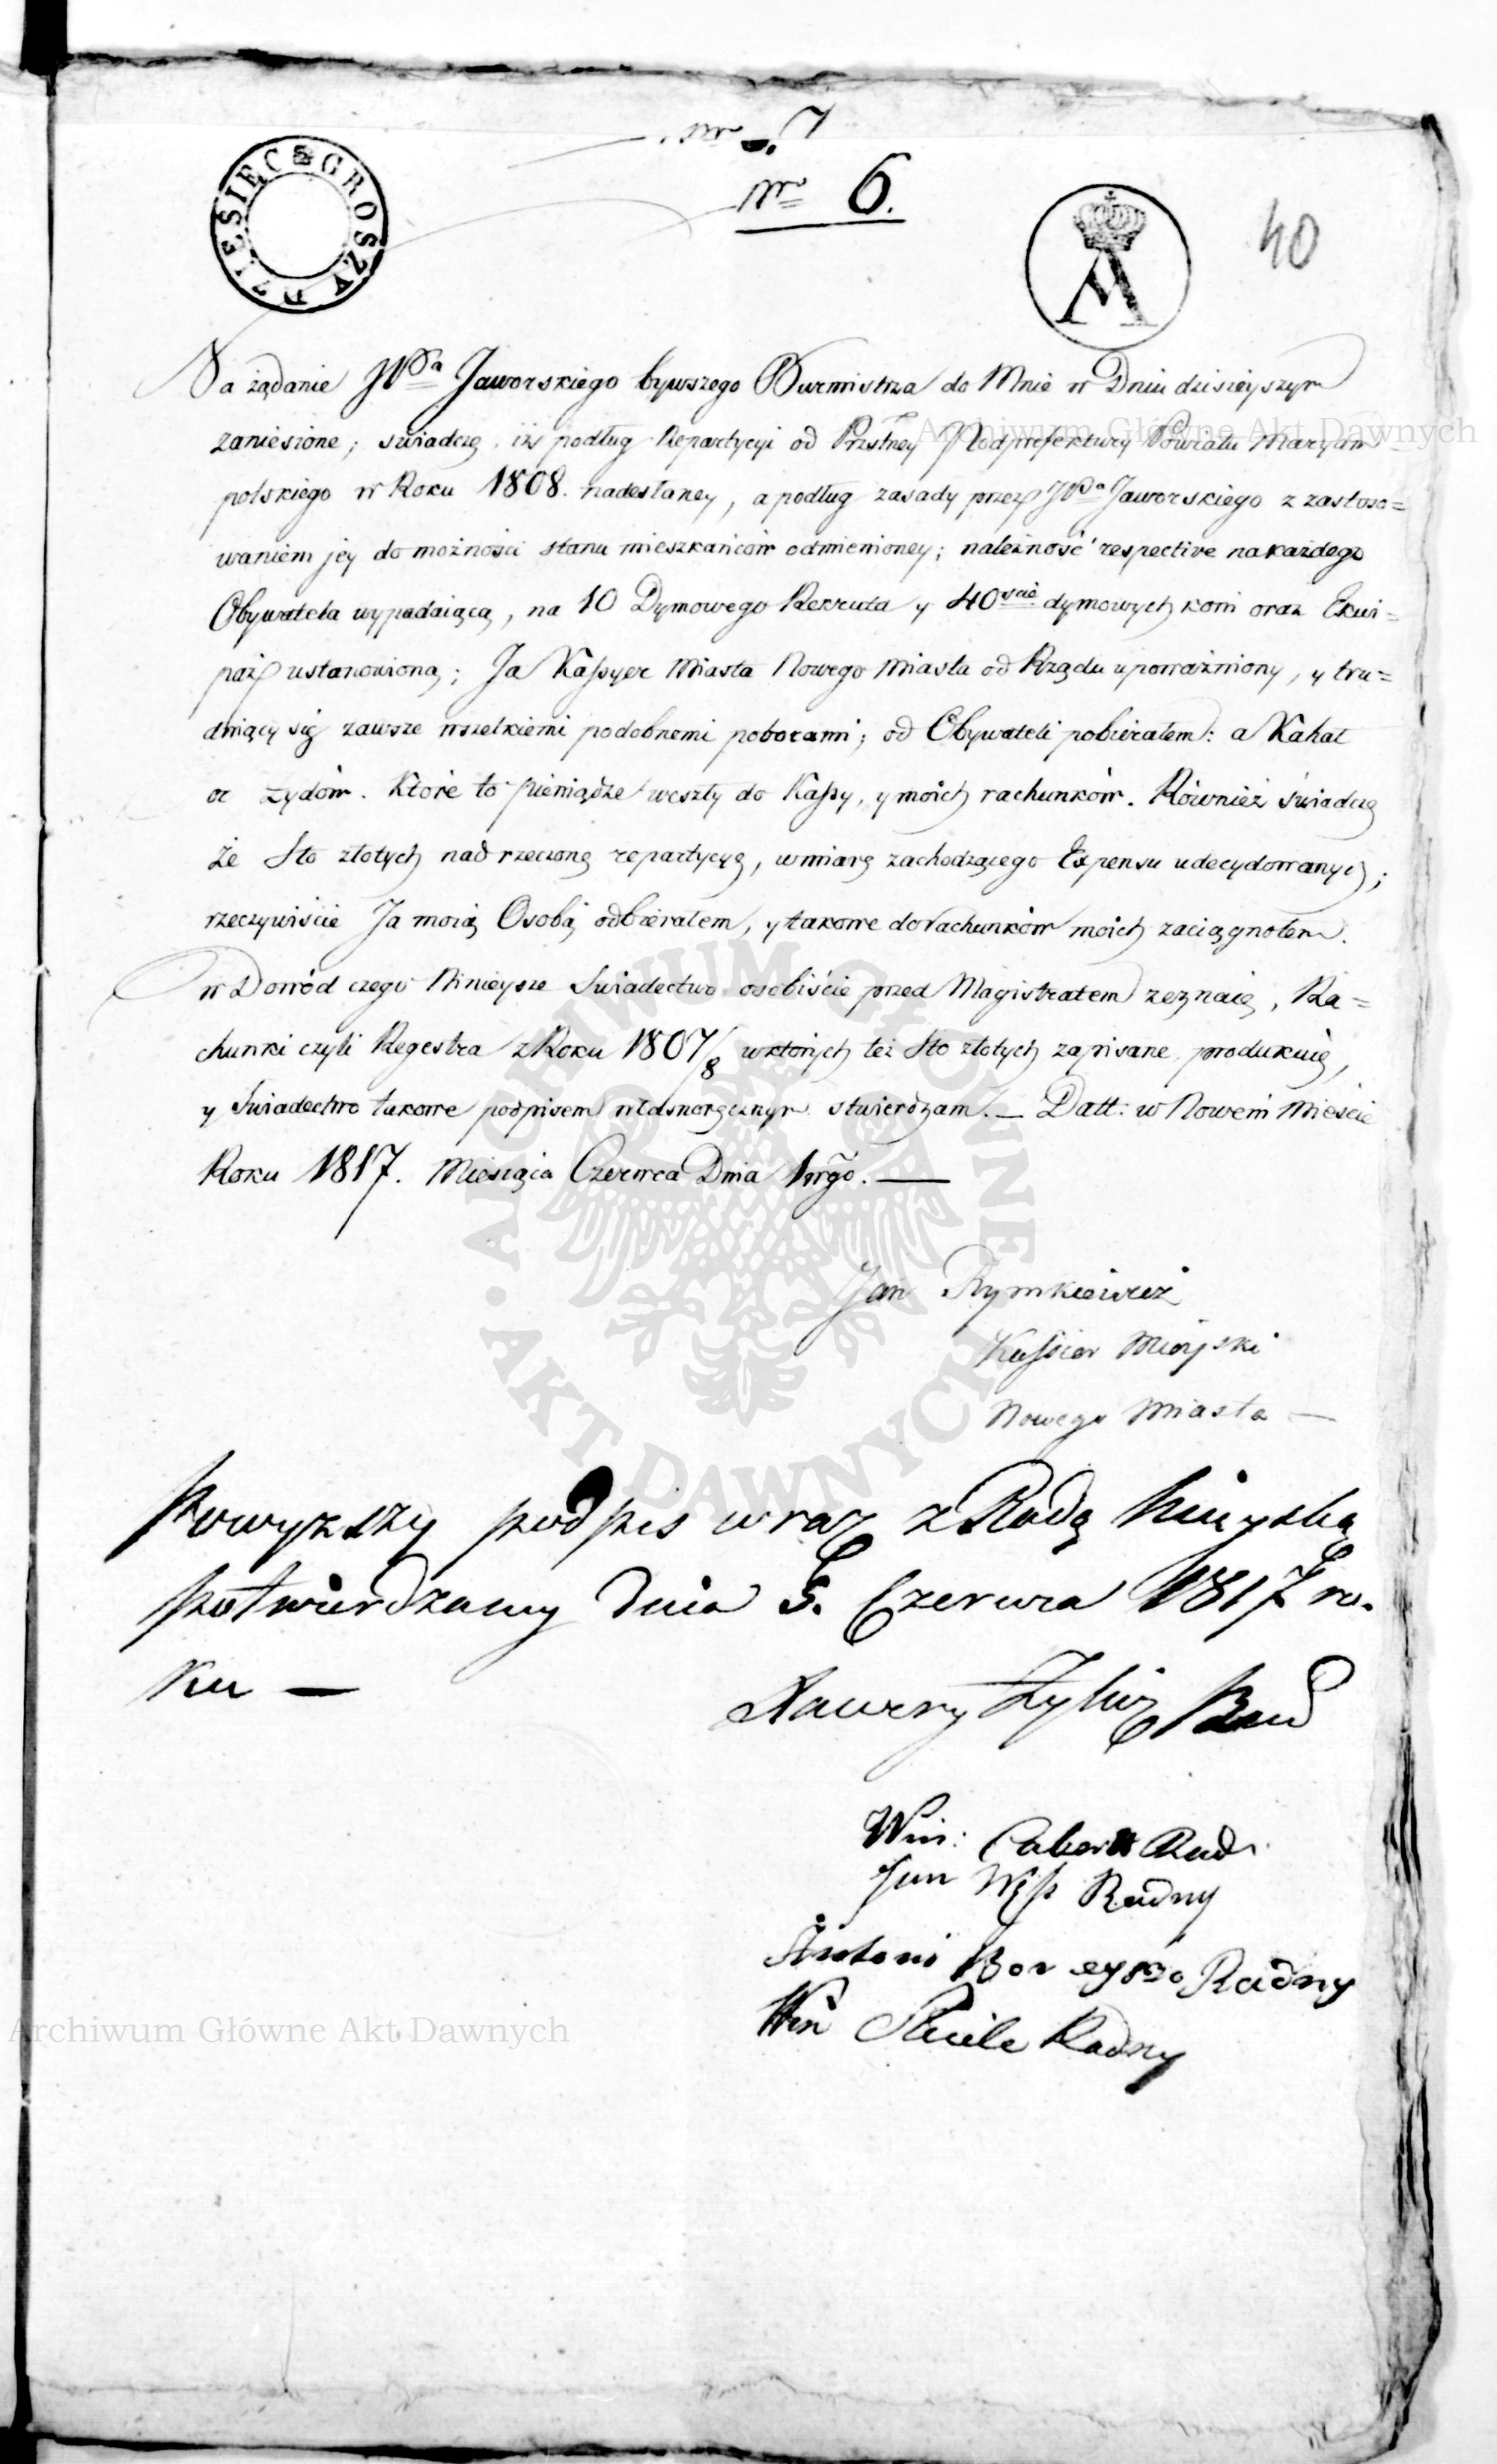 nro 7
DZIESIĘC GROSZY
nro 6.
40
Na żądanie JPna Jaworskiego bywszego Burmistrza do Mnie w Dniu dzisieyszym
zaniesione; swiadczę iż podług Repartycyi od Prześtney Podprefektury Powiatu Maryam
polskiego w Roku 1808. nadesłaney, a podług zasady przez JPna Jaworskiego z zastoso=
waniem jey do możnosci stanu mieszkańców odmienioney; należność respective na każdego
Obywatela wypadaiącą, na 10 Dymowego Rekruta y 40scie dymowych koni oraz Ekwi=
paż ustanowioną; Ja Kassyer Miasta Nowego Miasta od Rządu upoważniony, y tru=
dniący się zawsze wszelkiemi podobnemi poborami; od Obywateli pobierałem: a Kahał
od Zydów. Które to pieniądze weszły do Kassy, y moich rachunków. Również świadczę
że Sto złotych nad rzeczoną repartycyą, w miarę zachodzącego Expensu udecydowanych;
rzeczywiście Ja moią Osobą odbierałem, y takowe do rachunków moich zaciągnołem.
w Dowód czego Ninieysze Swiadectwo osobiście przed Magistratem zeznaię, Ra=
chunki czyli Regestra z Roku 1807/8 w których też Sto złotych zapisane produkuię,
y Swiadectwo takowe podpisem własnoręcznym stwierdzam. — Datt: w Nowem Mieście
Roku 1817. Miesiąca Czerwca Dnia 1wrgo. —
Jan Rymkiewicz
Kassier Mieyski
Nowego Miasta —
Powyższy podpis wraz z Radą Mieyską
potwierdzamy Dnia 5. Czerwca 1817 ro.
ku —
Xawery
Win: Rad.
Jan Radny
Antoni Radny
Win Radny
Archiwum Główne Akt Dawnych
Archiwum Główne Akt Dawnych
ARCHIWUM GŁÓWNE AKT DAWNYCH